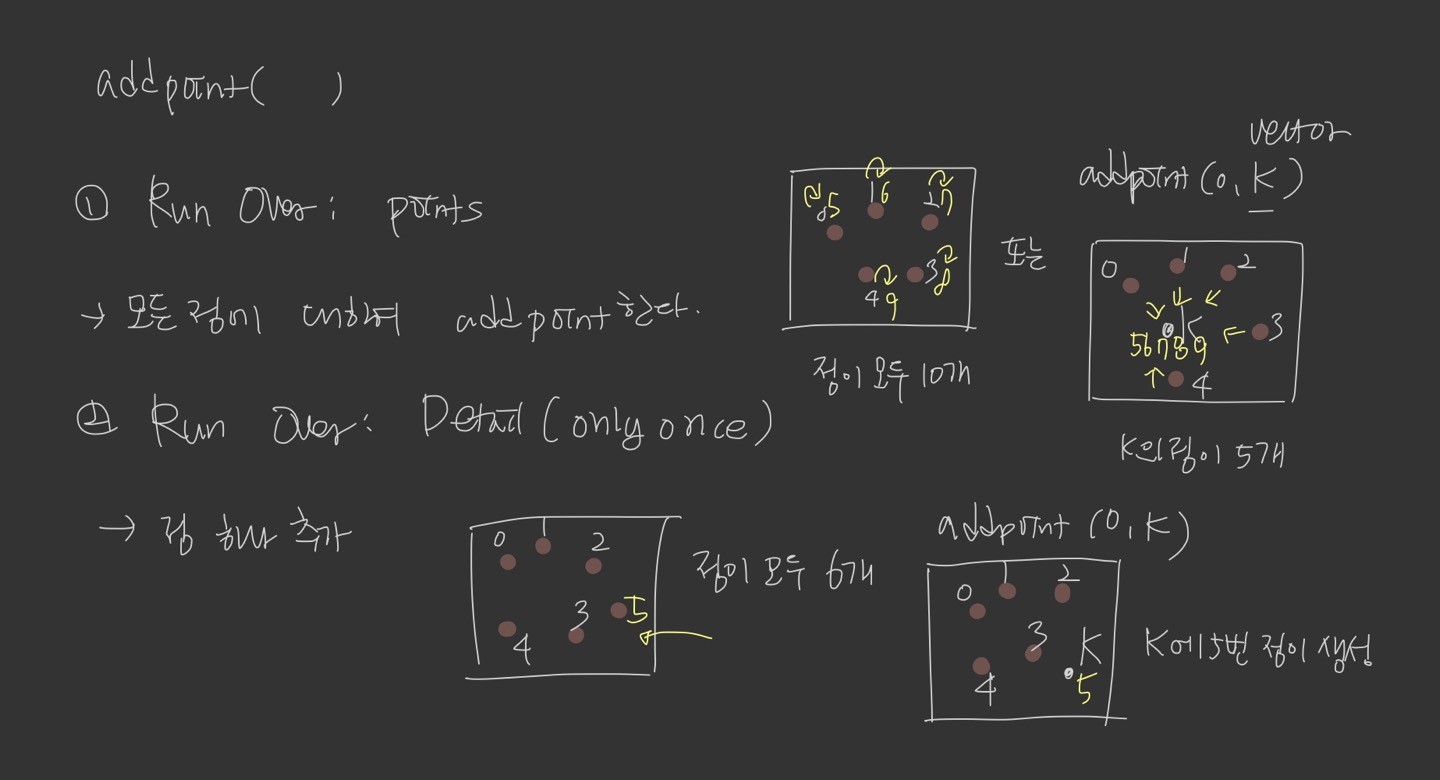 addpoint( )
① Run Over: points
→ 모든 점에 대하여 addpoint한다.
0 5 1 6 2 7
3 8
4 9
점이 모두 10개
또는
vector
addpoint(0, K)
0 1 2
K
5 6 7 8 9
3
4
K의 점이 5개
② Run Over: Detail (only once)
→ 점 하나 추가
0 1 2
3 5
4
점이 모두 6개
addpoint (0, K)
0 1 2
3 K
4 5
K에 5번 점이 생성